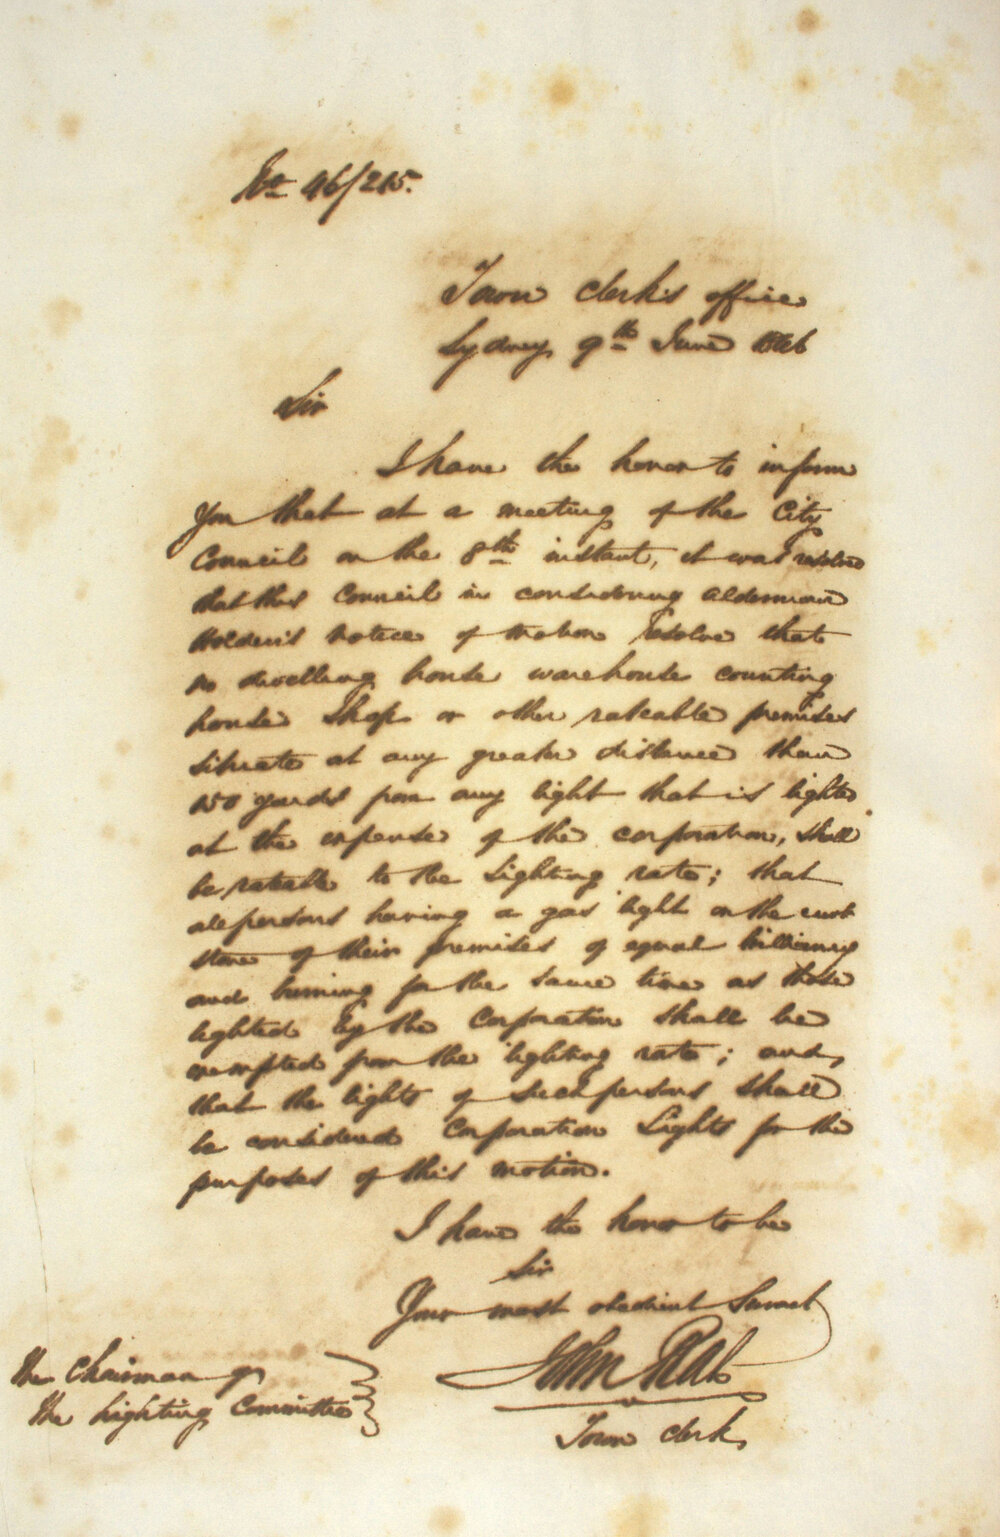 No 46/215.
Town Clerk's office
Sydney 9th June 1846
Sir
I have the honor to inform
you that at a meeting of the City
Council on the 8th instant, it was resolved
that this Council in considering Alderman
Holden's notice of motion resolve that
no dwelling house warehouse counting
house Shop or other rateable premises
situate at any greater distance than
150 yards from any light that is lighted
at the expense of the corporation, shall
be rateable to the Lighting rate; that
all persons having a gas light on the curb
stone of their premises of equal brilliancy
and burning for the same time as those
lighted by the Corporation shall be
exempted from the lighting rate; and,
that the lights of such persons shall
be considered Corporation Lights for the
purposes of this motion.
I have the honor to be
Sir
Your most obedient Servant
John Rae
Town Clerk
The Chairman of
the Lighting Committee